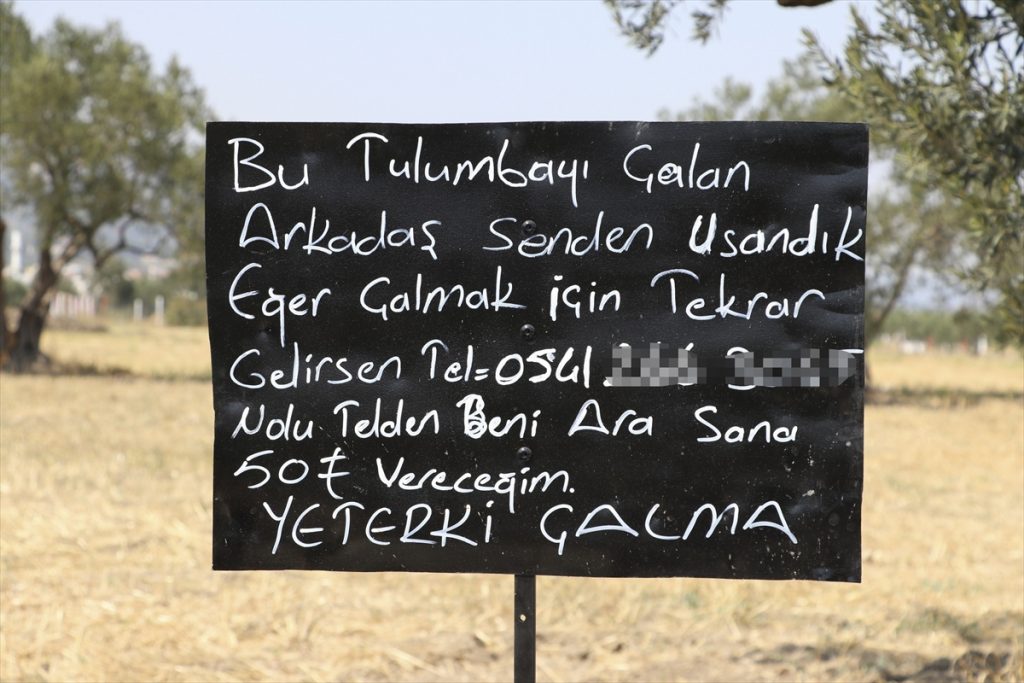 Bu Tulumbayı Çalan
Arkadaş Senden Usandık
Eğer Çalmak için Tekrar
Gelirsen Tel=0541
Nolu Telden Beni Ara Sana
50₺ Vereceğim.
YETERKİ ÇALMA